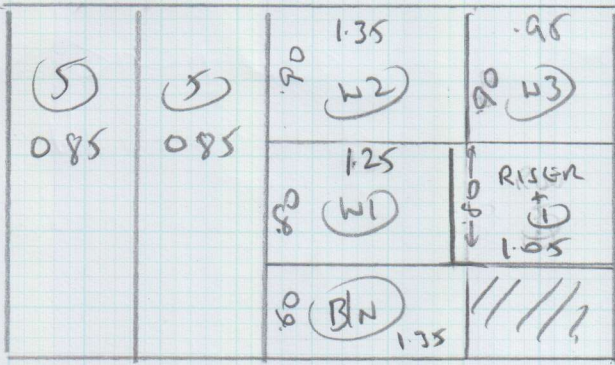 5
0.85
5
0.85
1.35
.90
W2
.95
.90
W3
1.25
.80
W1
.80
RISER
+
1
1.05
.60
BIN
1.35